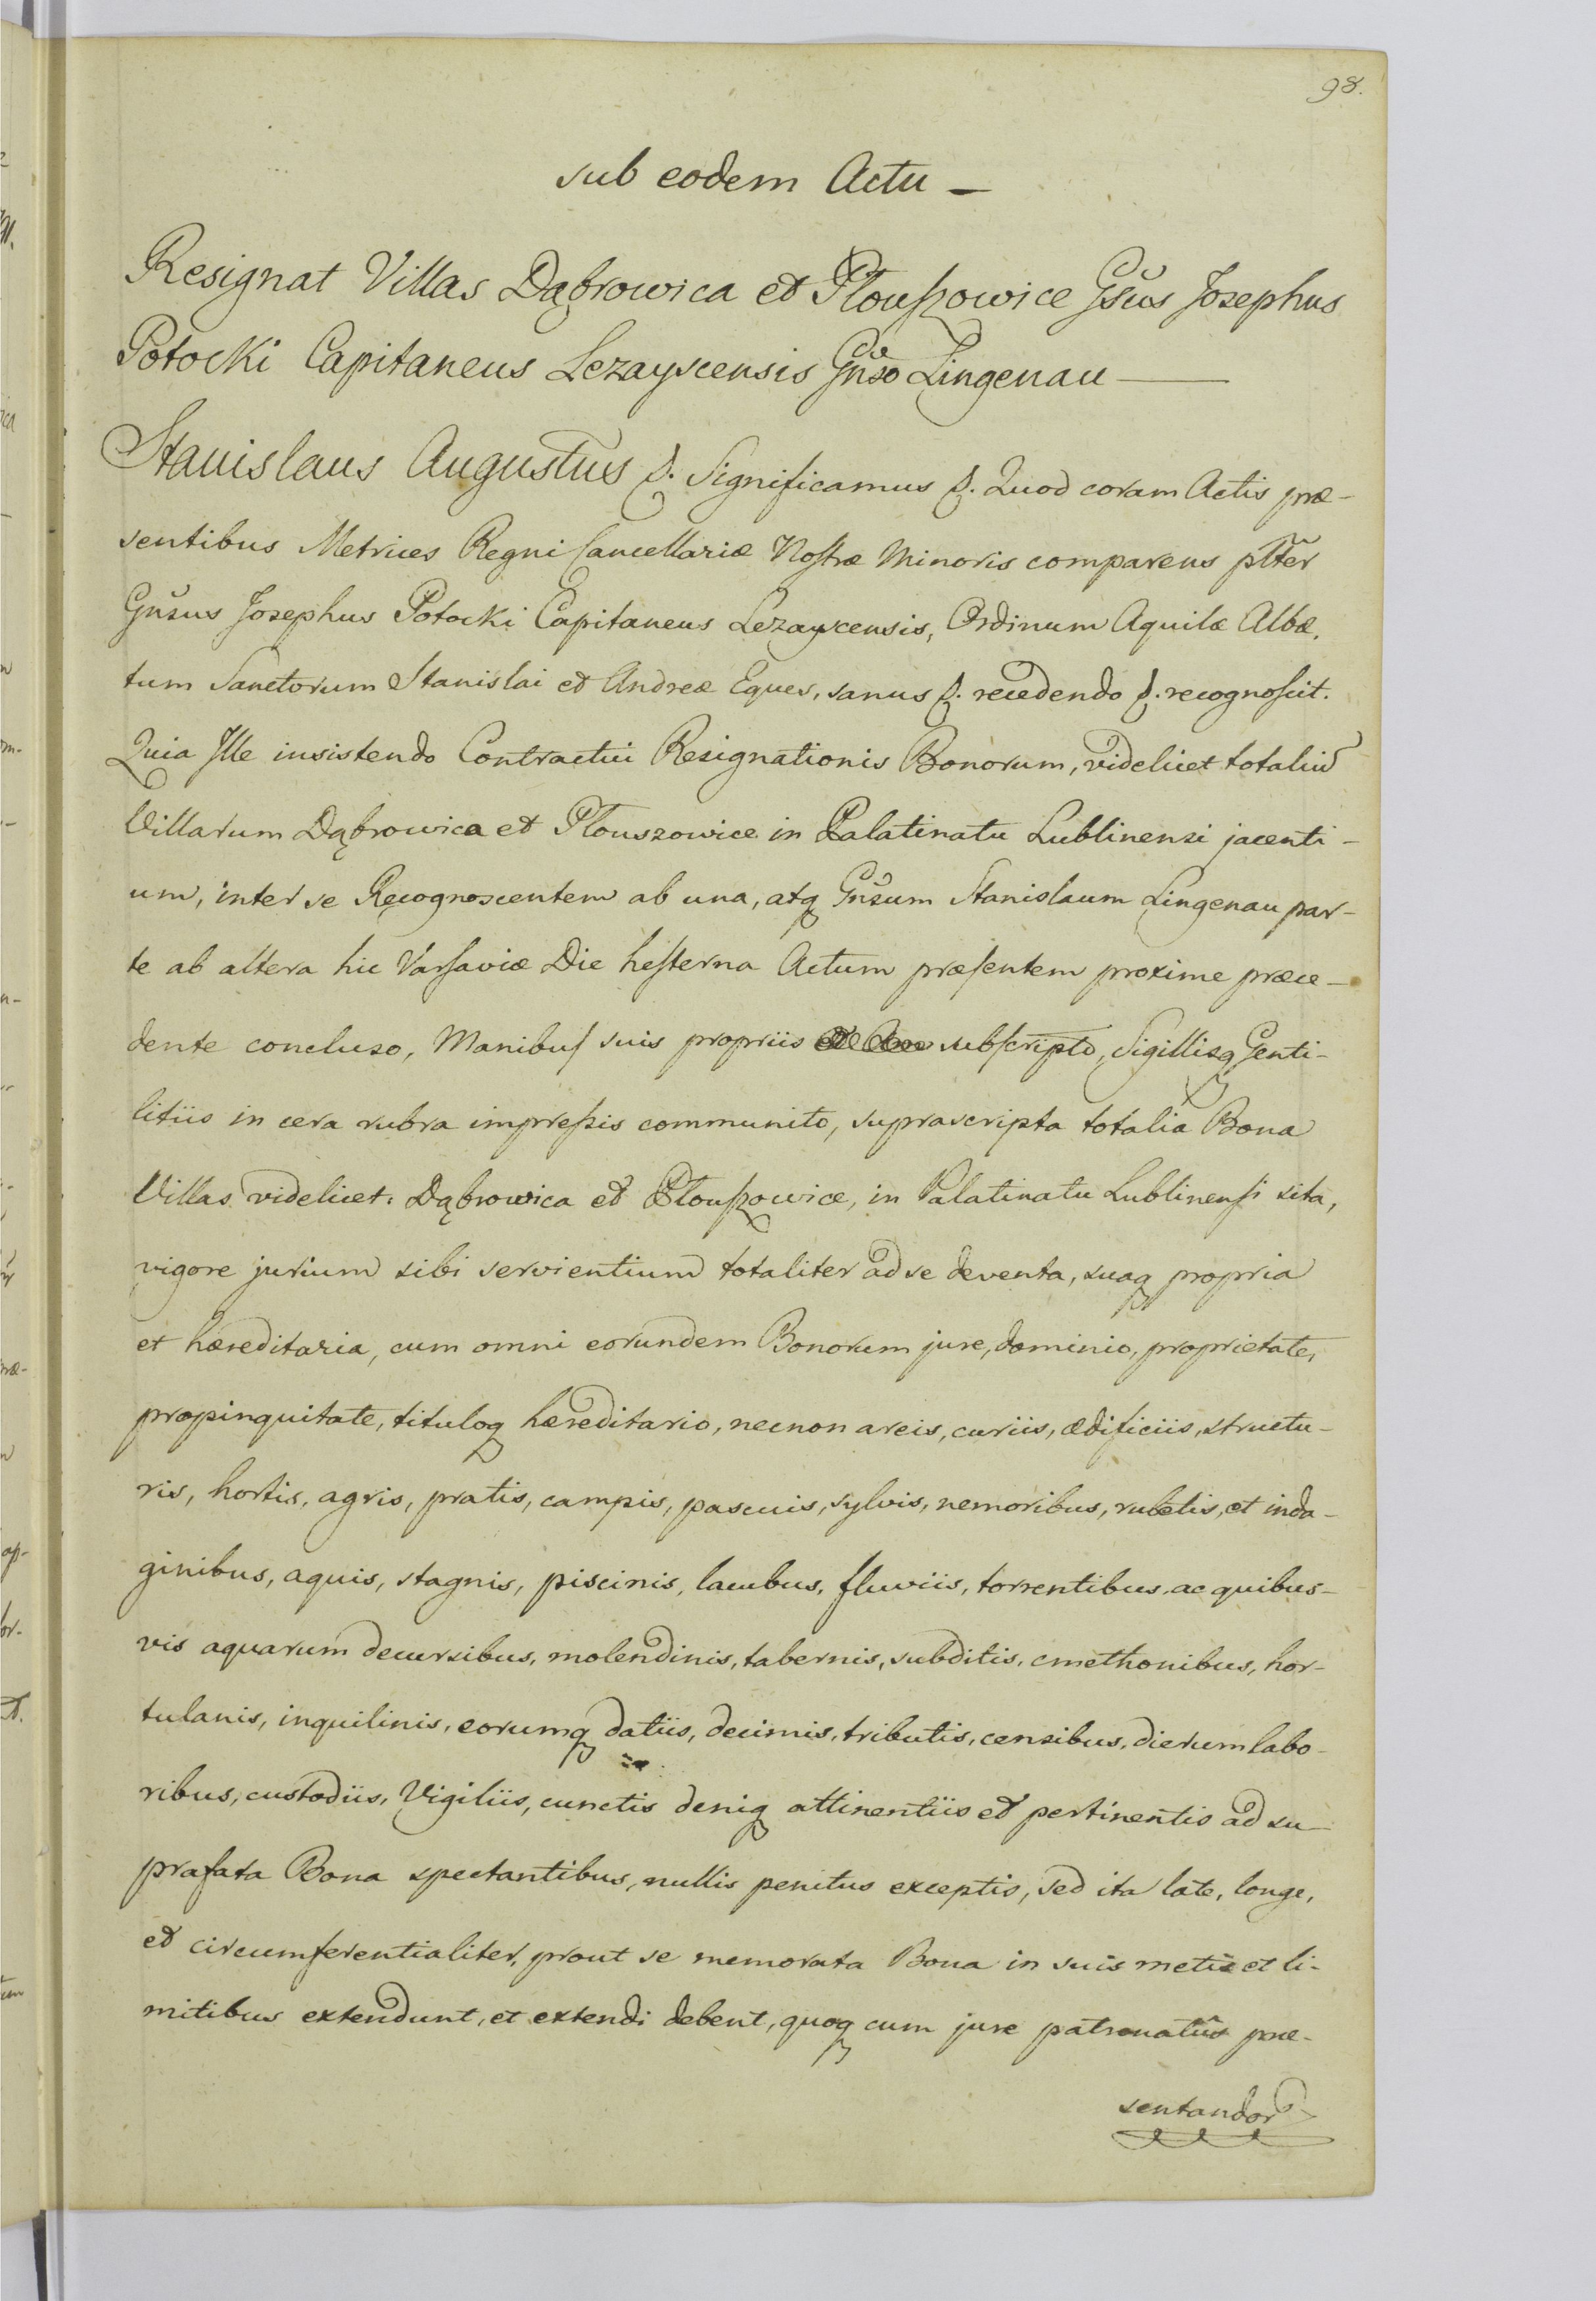 98.
sub eodem Actu —
Resignat Villas Dąbrowica et Płouszowice Gsus Josephus
Potocki Capitaneus Lezayscensis Gnso Lingenau —
Stanislaus Augustus &. Significamus &. Quod coram Actis præ-
sentibus Metrices Regni Cancellariæ Nostræ Minoris comparens pltter
Gnsus Josephus Potocki Capitaneus Lezayscensis, Ordinum Aquilæ Albæ,
tum Sanctorum Stanislai et Andreæ Eques, sanus &. recedendo &. recognoscit.
Quia Ille insistendo Contractui Resignationis Bonorum, videlicet totaliu
Villarum Dąbrowica et Plouszowice in Palatinatu Lublinensi jacenti-
um, inter se Recognoscentem ab una, atq Gnsum Stanislaum Lingenau par-
te ab altera hic Varsaviæ Die hesterna Actum præsentem proxime præce-
dente concluso, Manibus suis propriis subscripto, Sigillisq Genti-
litiis in cera rubra impressis communito, suprascripta totalia Bona
Villas videlicet: Dąbrowica et Plouszowice, in Palatinatu Lublinensi sita,
vigore jurium sibi servientium totaliter ad se deventa, suaq propria
et hæreditaria, cum omni eorundem Bonorum jure, dominio, proprietate,
propinquitate, tituloq hæreditario, necnon areis, curiis, ædificiis, structu-
ris, hortis, agris, pratis, campis, pascuis, sylvis, nemoribus, rubetis, et inda-
ginibus, aquis, stagnis, piscinis, lacubus, fluviis, torrentibus, ac quibus-
vis aquarum decursibus, molendinis, tabernis, subditis, cmethonibus, hor-
tulanis, inquilinis, eorumq datiis, decimis, tributis, censibus, dierum labo-
ribus, custodiis, Vigiliis, cunctis deniq attinentiis et pertinentis ad su-
prafata Bona spectantibus, nullis penitus exceptis, sed ita late, longe,
et circumferentialiter, prout se memorata Bona in suis metis et li-
mitibus extendunt, et extendi debent, quoq cum jure patronatûs præ-
sentandor